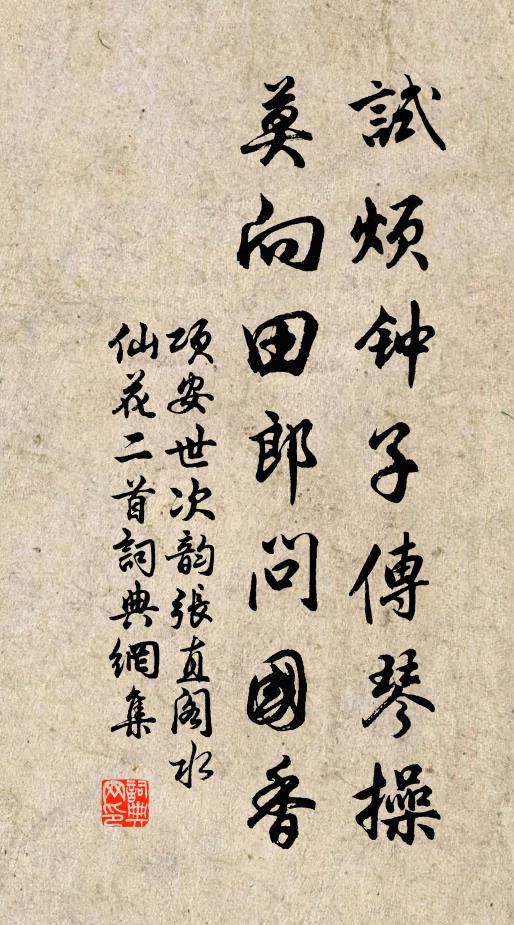 試煩钟子傳琴操
莫向田郎問國香
项安世次韵張直阁水
仙花二首詞典網集
詞典网印